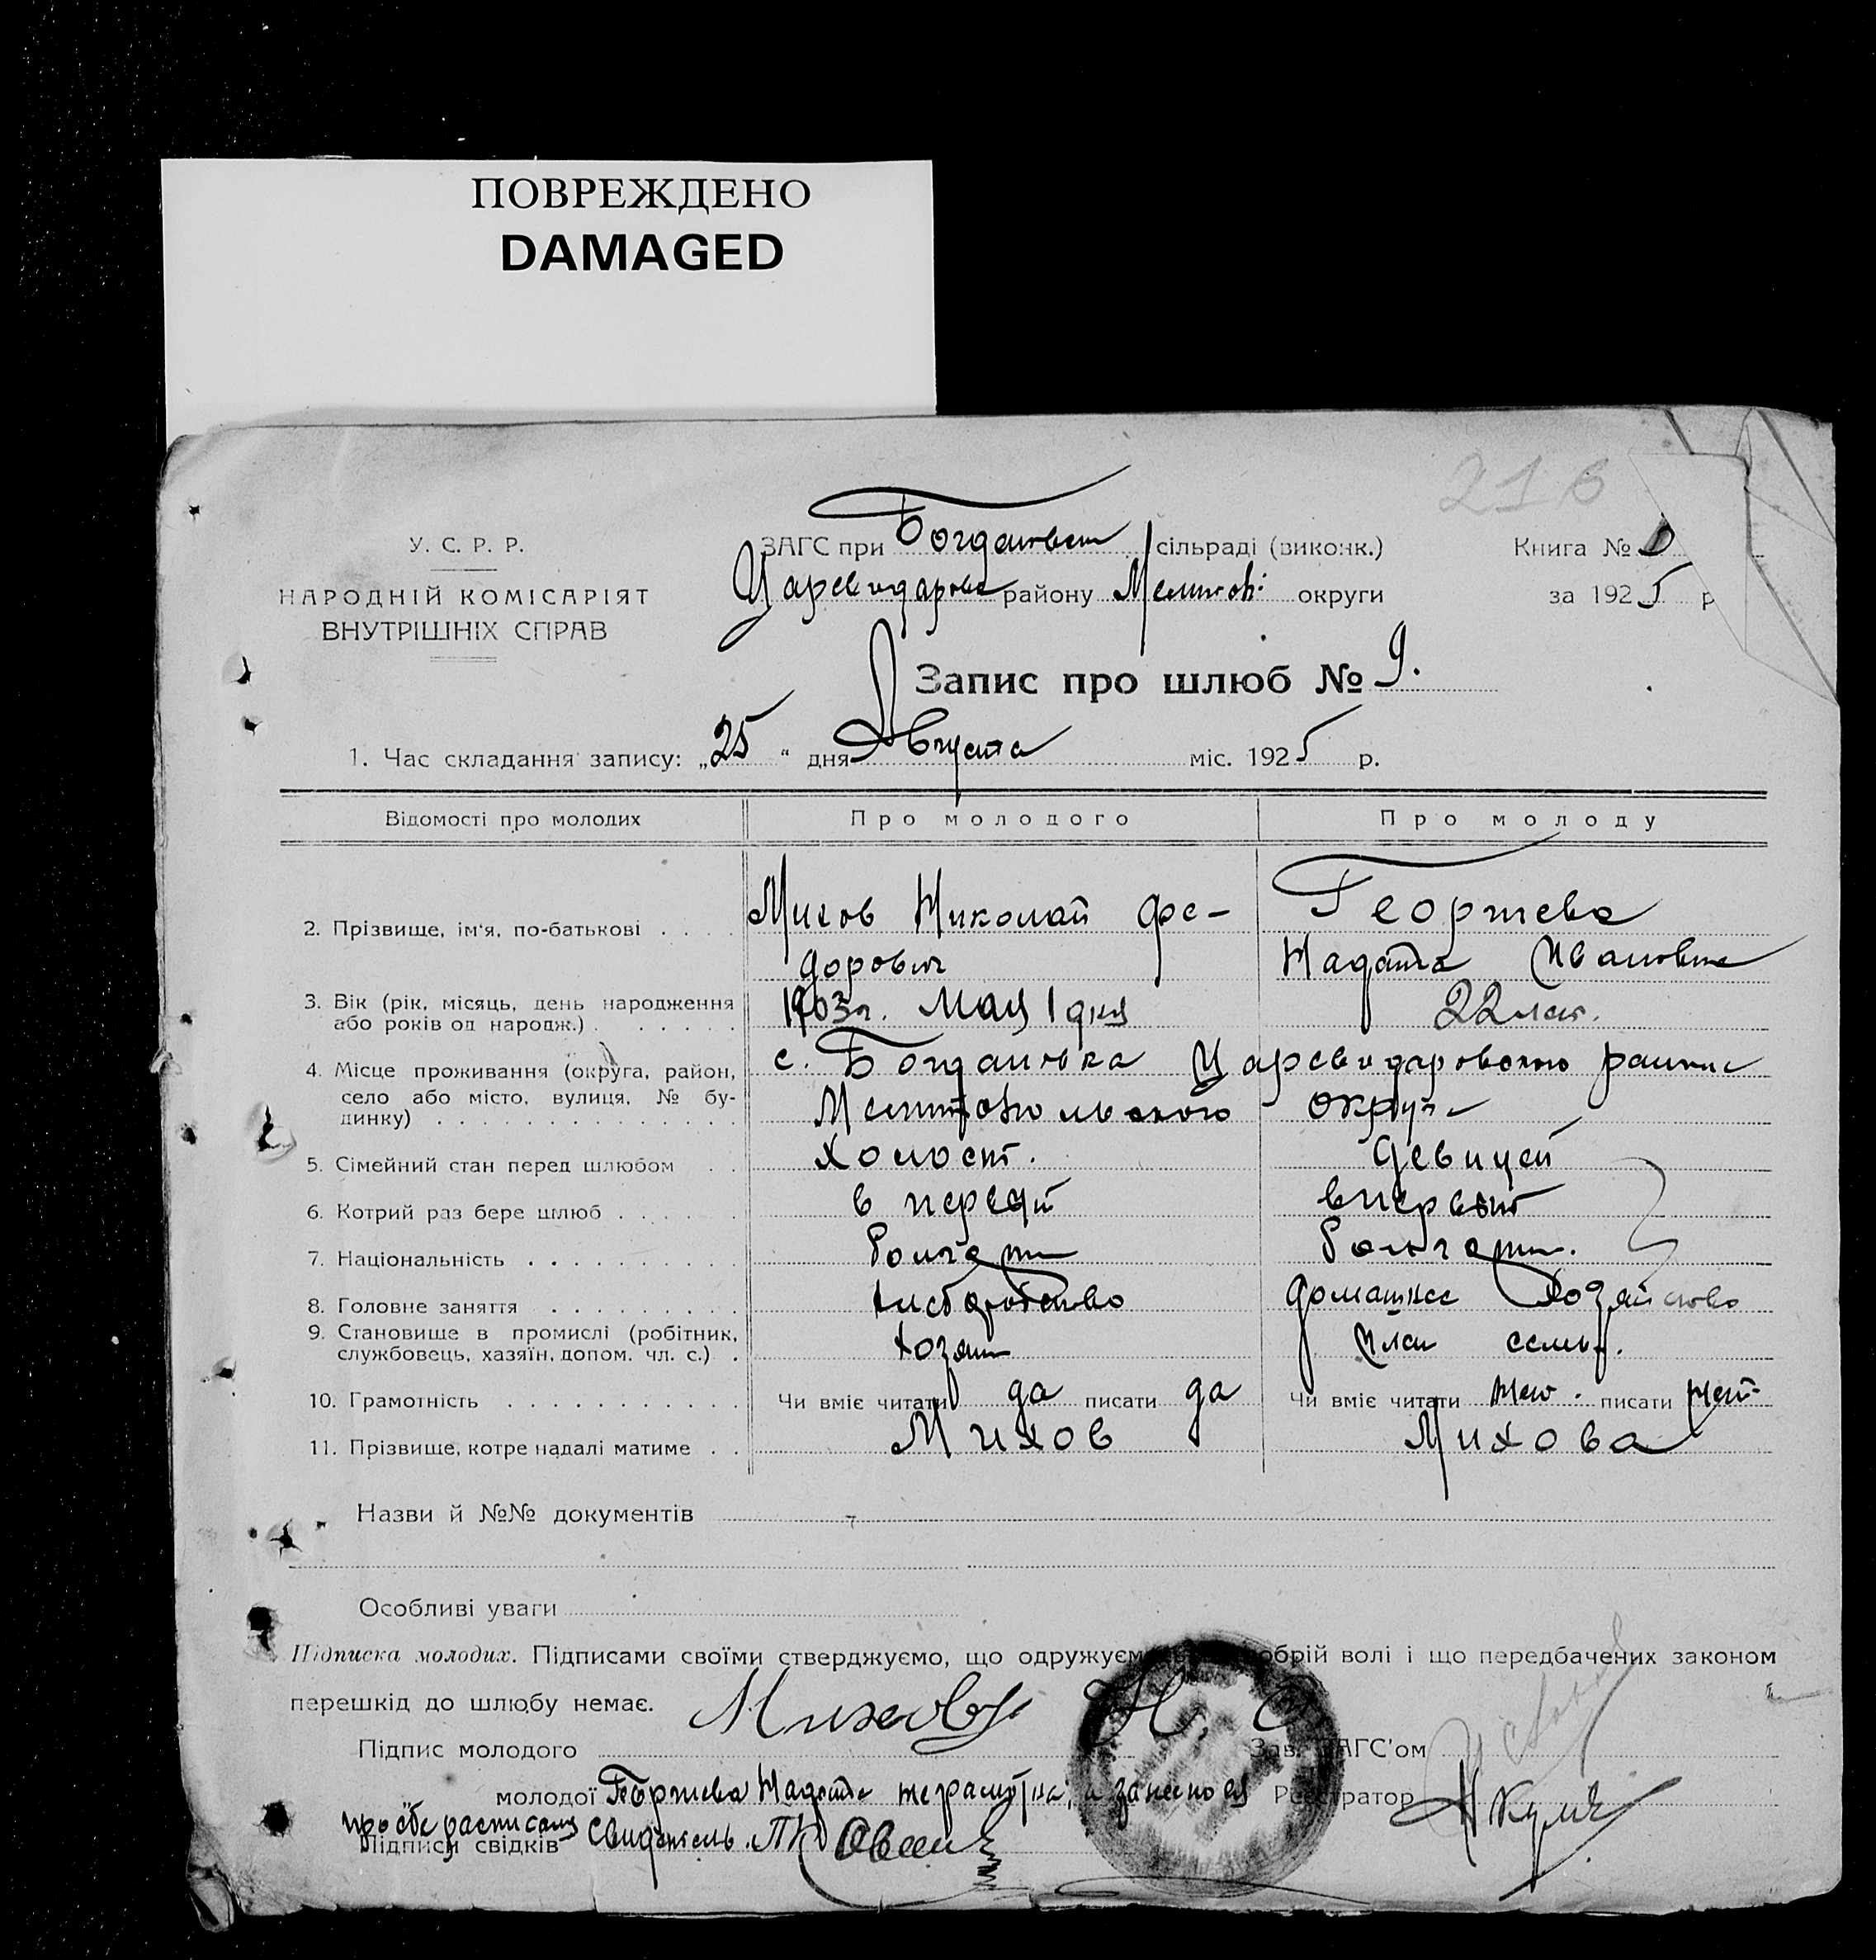 ПОВРЕЖДЕНО
DAMAGED
216
У. С. Р. Р.
НАРОДНІЙ КОМІСАРІЯТ
ВНУТРІШНІХ СПРАВ
ЗАГС при Богдановськ сільраді (виконк.)
Царевидарово району Мелитов. округи
Книга №
за 1925 р
Запис про шлюб № 9.
1. Час складання запису: „25“ дня Августа міс. 1925 р.
Відомості про молодих Про молодого Про молоду
2. Прізвище, ім'я, по-батькові Михов Николай Фе-
дорович
Георгиева
Надежда Ивановна
3. Вік (рік, місяць, день народження
або років од народж.) 1903 г. Мая 1 дня 22 лет.
4. Місце проживання (округа, район,
село або місто, вулиця, № бу-
динку)
с. Богдановка Царевидаровского района
Мелитопольского округа
5. Сімейний стан перед шлюбом Холост. Девицей
6. Котрий раз бере шлюб в первый впервый
7. Національність Болгарин Болгарин.
8. Головне заняття Хлеборобство домашнее хозяйство
9. Становище в промислі (робітник,
службовець, хазяїн, допом. чл. с.) Хозяин Член семьи.
10. Грамотність Чи вміє читати да писати да Чи вміє читати нет. писати нет
11. Прізвище, котре надалі матиме Михов Михова
Назви й №№ документів
Особливі уваги
Підписка молодих. Підписами своїми стверджуємо, що одружуєм обрій волі і що передбачених законом
перешкід до шлюбу немає.
Підпис молодого Михов Н. Зав. ЗАГС'ом
молодої Георгиева неграмотна, а за нее по ея Реєстратор
просьбе расписался
Підписи свідків свидетель